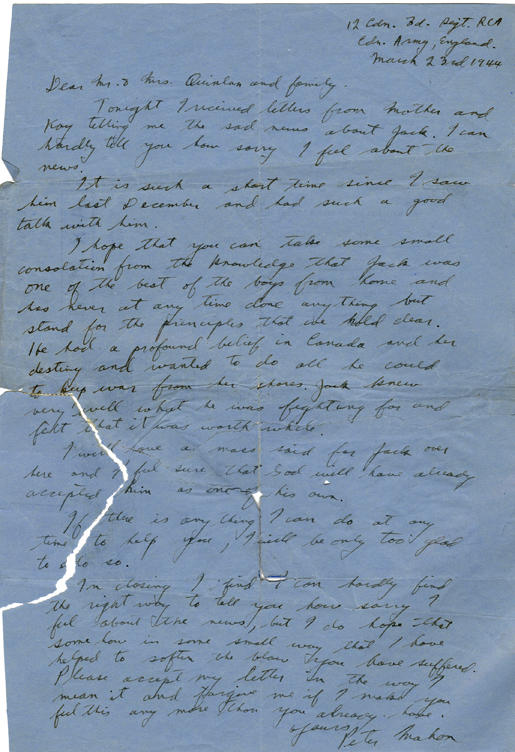 12 Cdn. Fd. Regt. RCA
Cdn. Army, England.
March 23rd 1944
Dear Mr. & Mrs. Quinlan and family.
Tonight I received letters from Mother and
Kay telling me the sad news about Jack. I can
hardly tell you how sorry I feel about the
news.
It is such a short time since I saw
him last December and had such a good
talk with him.
I hope that you can take some small
consolation from the knowledge that Jack was
one of the best of the boys from home and
has never at any time done anything but
stand for the principles that we hold dear.
He had a profound belief in Canada and her
destiny and wanted to do all he could
to keep war from her shores. Jack knew
very well what he was fighting for and
felt that it was worth while.
I will have a mass said for Jack over
here and I feel sure that God will have already
accepted him as one of his own.
If there is anything I can do at any
time to help you, I will be only too glad
to do so.
In closing I find I can hardly find
the right way to tell you how sorry I
feel about the news, but I do hope that
some how in some small way that I have
helped to soften the blow you have suffered.
Please accept my letter in the way I
mean it and forgive me if I make you
feel this any more than you already have.
Yours,
Peter Mahon